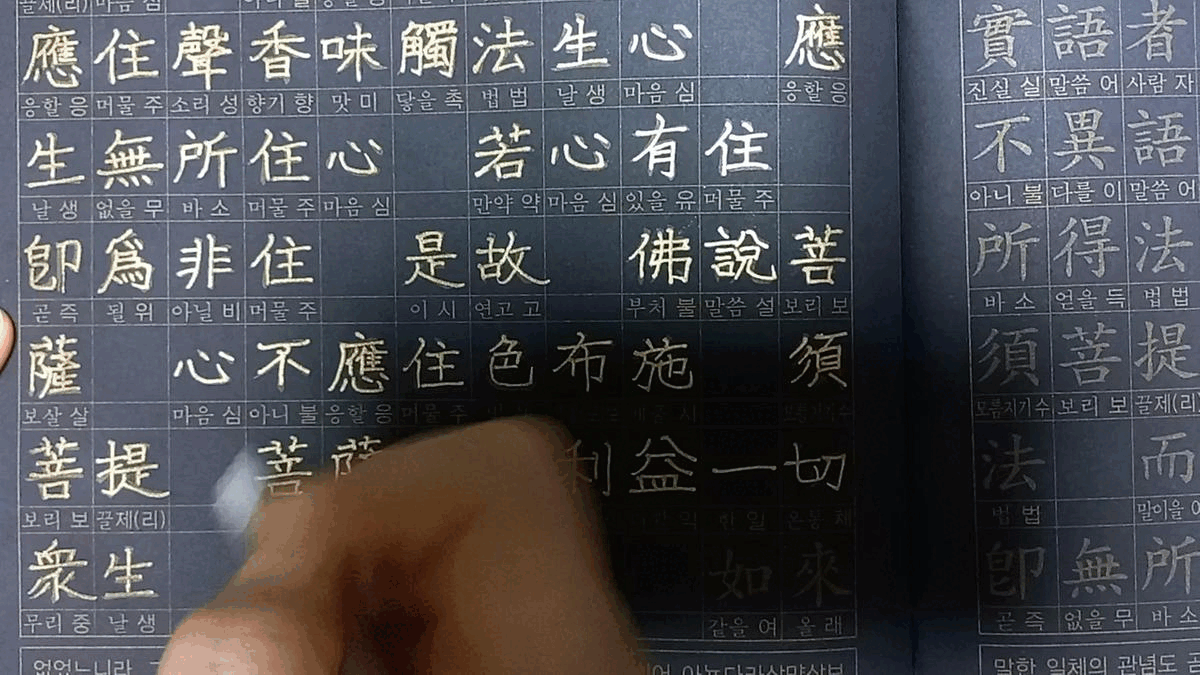 應住聲香味觸法生心 應
응할 응 머물 주 소리 성 향기 향 맛 미 닿을 촉 법 법 날 생 마음 심 응할 응
生無所住心 若心有住
날 생 없을 무 바 소 머물 주 마음 심 만약 약 마음 심 있을 유 머물 주
卽爲非住 是故 佛說菩
곧 즉 될 위 아닐 비 머물 주 이 시 연고 고 부처 불 말씀 설 보리 보
薩 心不應住色布施 須
보살 살 마음 심 아니 불 응할 응 머물 주
菩提 菩薩 利益一切
보리 보 끌제(리) 한 일 온통 체
衆生 如來
무리 중 날 생 같을 여 올 래
없었느니라
實語者
진실 실 말씀 어 사람 자
不異語
아니 불 다를 이 말씀 어
所得法
바 소 얻을 득 법 법
須菩提
모름지기 수 보리 보 끌제(리)
法 而
법 법 말이을
卽無所
곧 즉 없을 무 바 소
말한 일체의 관념도